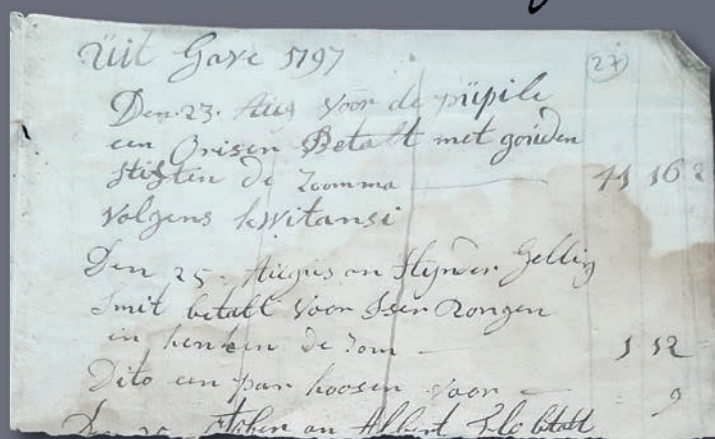 Uit Gave 1797
27
Den 23. Aug voor de püpile
een Orisen Betalt met goüden
stiften de Zomma 41 16 2
Volgens kwitansi
Den 25. Aügus an Heynder Gellig
Smit betalt voor Iser
in de Zom 1 12
Dito een par hoosen voor 9
Den 25 an Albert betalt